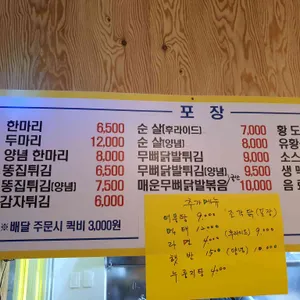 포 장
한마리 6,500
두마리 12,000
양념 한마리 8,000
똥집튀김 6,500
똥집튀김(양념) 7,500
감자튀김 6,000
※배달 주문시 퀵비 3,000원
순 살(후라이드) 7,000
순 살(양념) 8,000
무뼈닭발튀김 9,000
무뼈닭발튀김(양념) 9,500
매운무뼈닭발볶음 10,000
황 도
유황
소스
생 맥
음 료
추가메뉴
9,000
12,000
라 면 4,000
햇 반 1,500 (양념) 10,000
누룽지탕 4,000